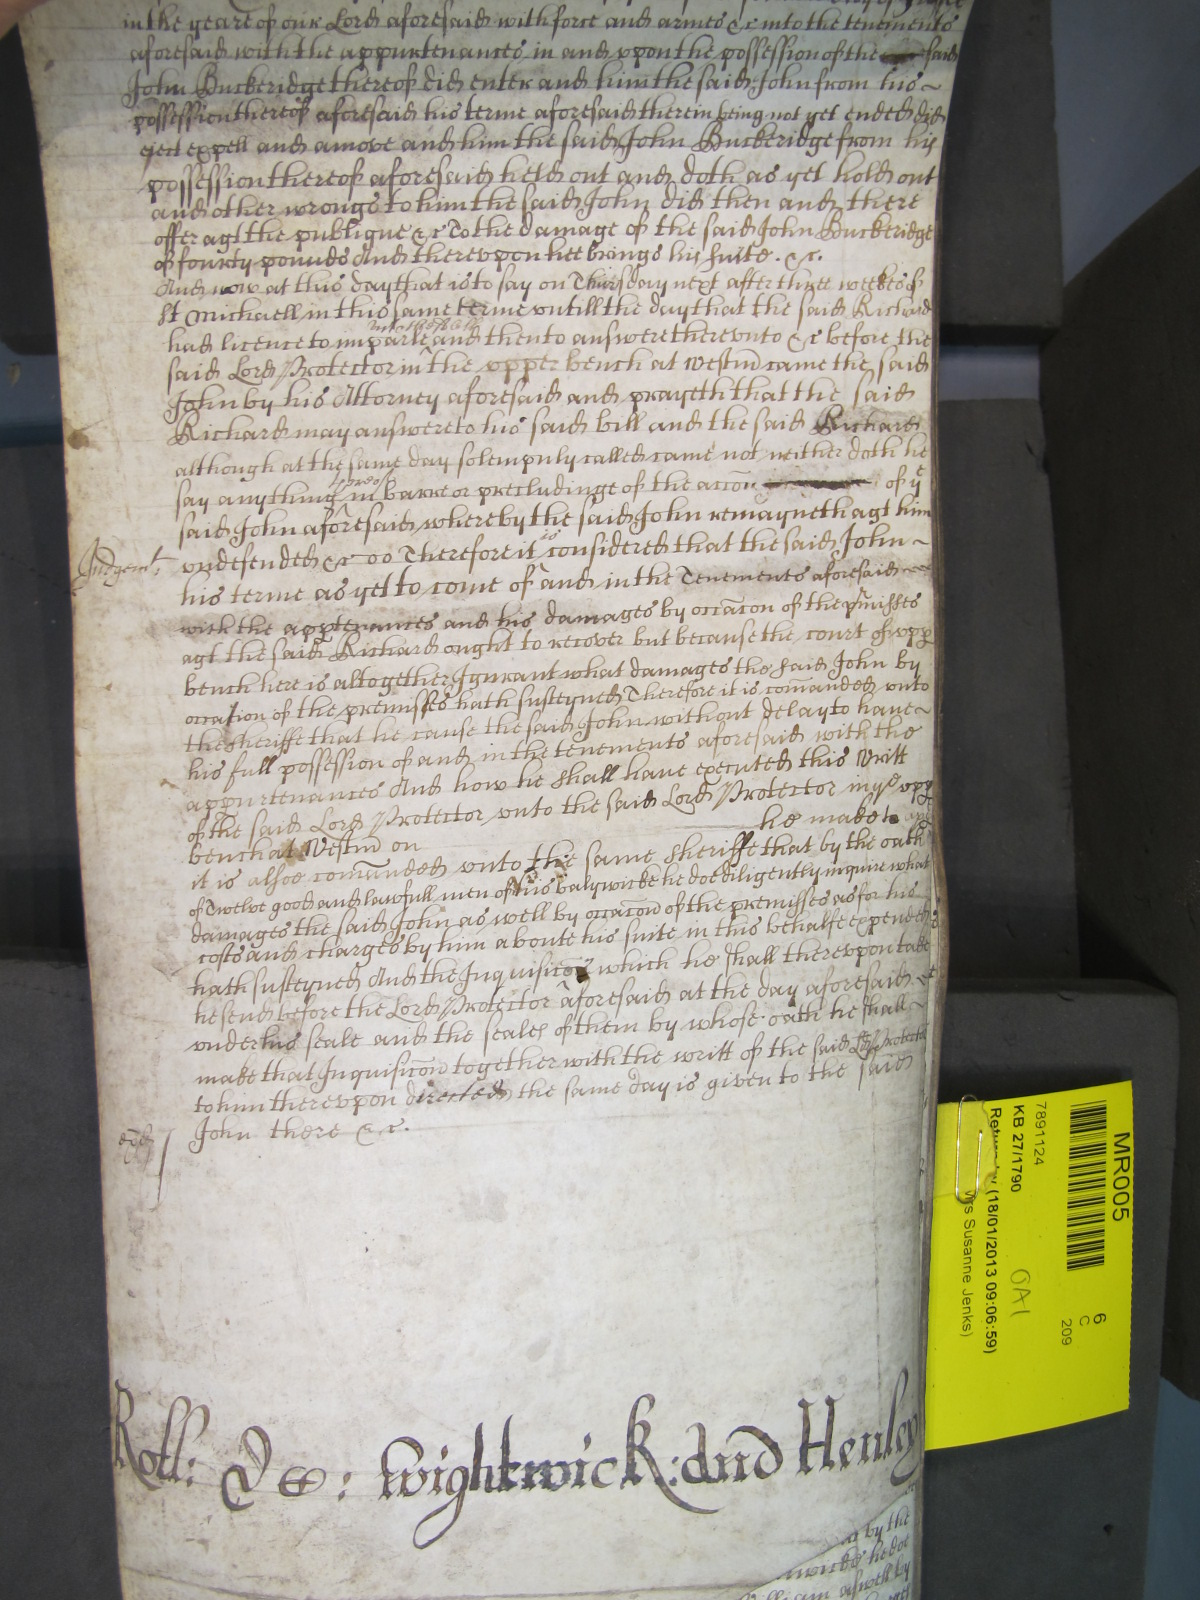 in the yeare of our Lord aforesaid with force and armes &c into the tenements
aforesaid with the appurtenances in and vpon the possession of the said
John Buckeridge thereof did enter and him the said John from his
possession thereof aforesaid his terme aforesaid therein being not yet ended did
eject expell and amove and him the said John Buckeridge from his
possession thereof aforesaid held out and doth as yet hold out
and other wrongs to him the said John did then and there
offer agt the publique &c To the damage of the said John Buckeridge
of fourty pounds And therevpon hee brings his suite . &c.
And now at this day that is to say on Thursday next after three weekes of
St Michaell in this same terme vntill the day that the said Richard
had licence to imparle and then to answere therevnto &c before the
said Lord Protector in the vpper bench at Westm came the said
John by his Attorney aforesaid and prayeth that the said
Richard may answere to his said bill and the said Richard
although at the same day solempnly called came not neither doth he
say anything in barre or precludinge of the accon of ye
said John aforesaid whereby the said John remayneth agt him
vndefended &c oo Therefore it is considered that the said John
Judgemt:
his terme as yet to come of and in the Tenements aforesaid
with the apptenances and his damages by occacon of the pmisses
agt the said Richard ought to recover but because the court of vpp
bench here is altogether Ignorant what damages the said John by
occation of the premisses hath susteyned Therefore it is comanded vnto
the sheriffe that he cause the said John without delay to have
his full possession of and in the tenements aforesaid with the
appurtenances And how he shall have executed this Writt
of the said Lord Protector vnto the said Lord Protector in ye vpp
bench at Westm on he make and
it is alsoe comanded vnto the same sheriffe that by the oath
of Twelve good and lawfull men of his balywicke he doe diligently inquire what
damages the said John as well by occacon of the premisses as for his
costs and charges by him aboute his suite in this behalfe expended
hath susteyned And the Inquisicon which he shall therevpon take
he send before the Lord Protector aforesaid at the day aforesaid &c
vnder his seale and the seales of them by whose oath he shall
make that Inquisicon together with the writt of the said Lord Protector
to him therevpon directed the same day is given to the said
John there &c.
Roll: De: Wightwick: and Henley
by the
he doe
William aswell by
MR005
7891124
KB 27/1790
Return by (18/01/2013 09:06:59)
Mrs Susanne Jenks)
OA1
6
C
209